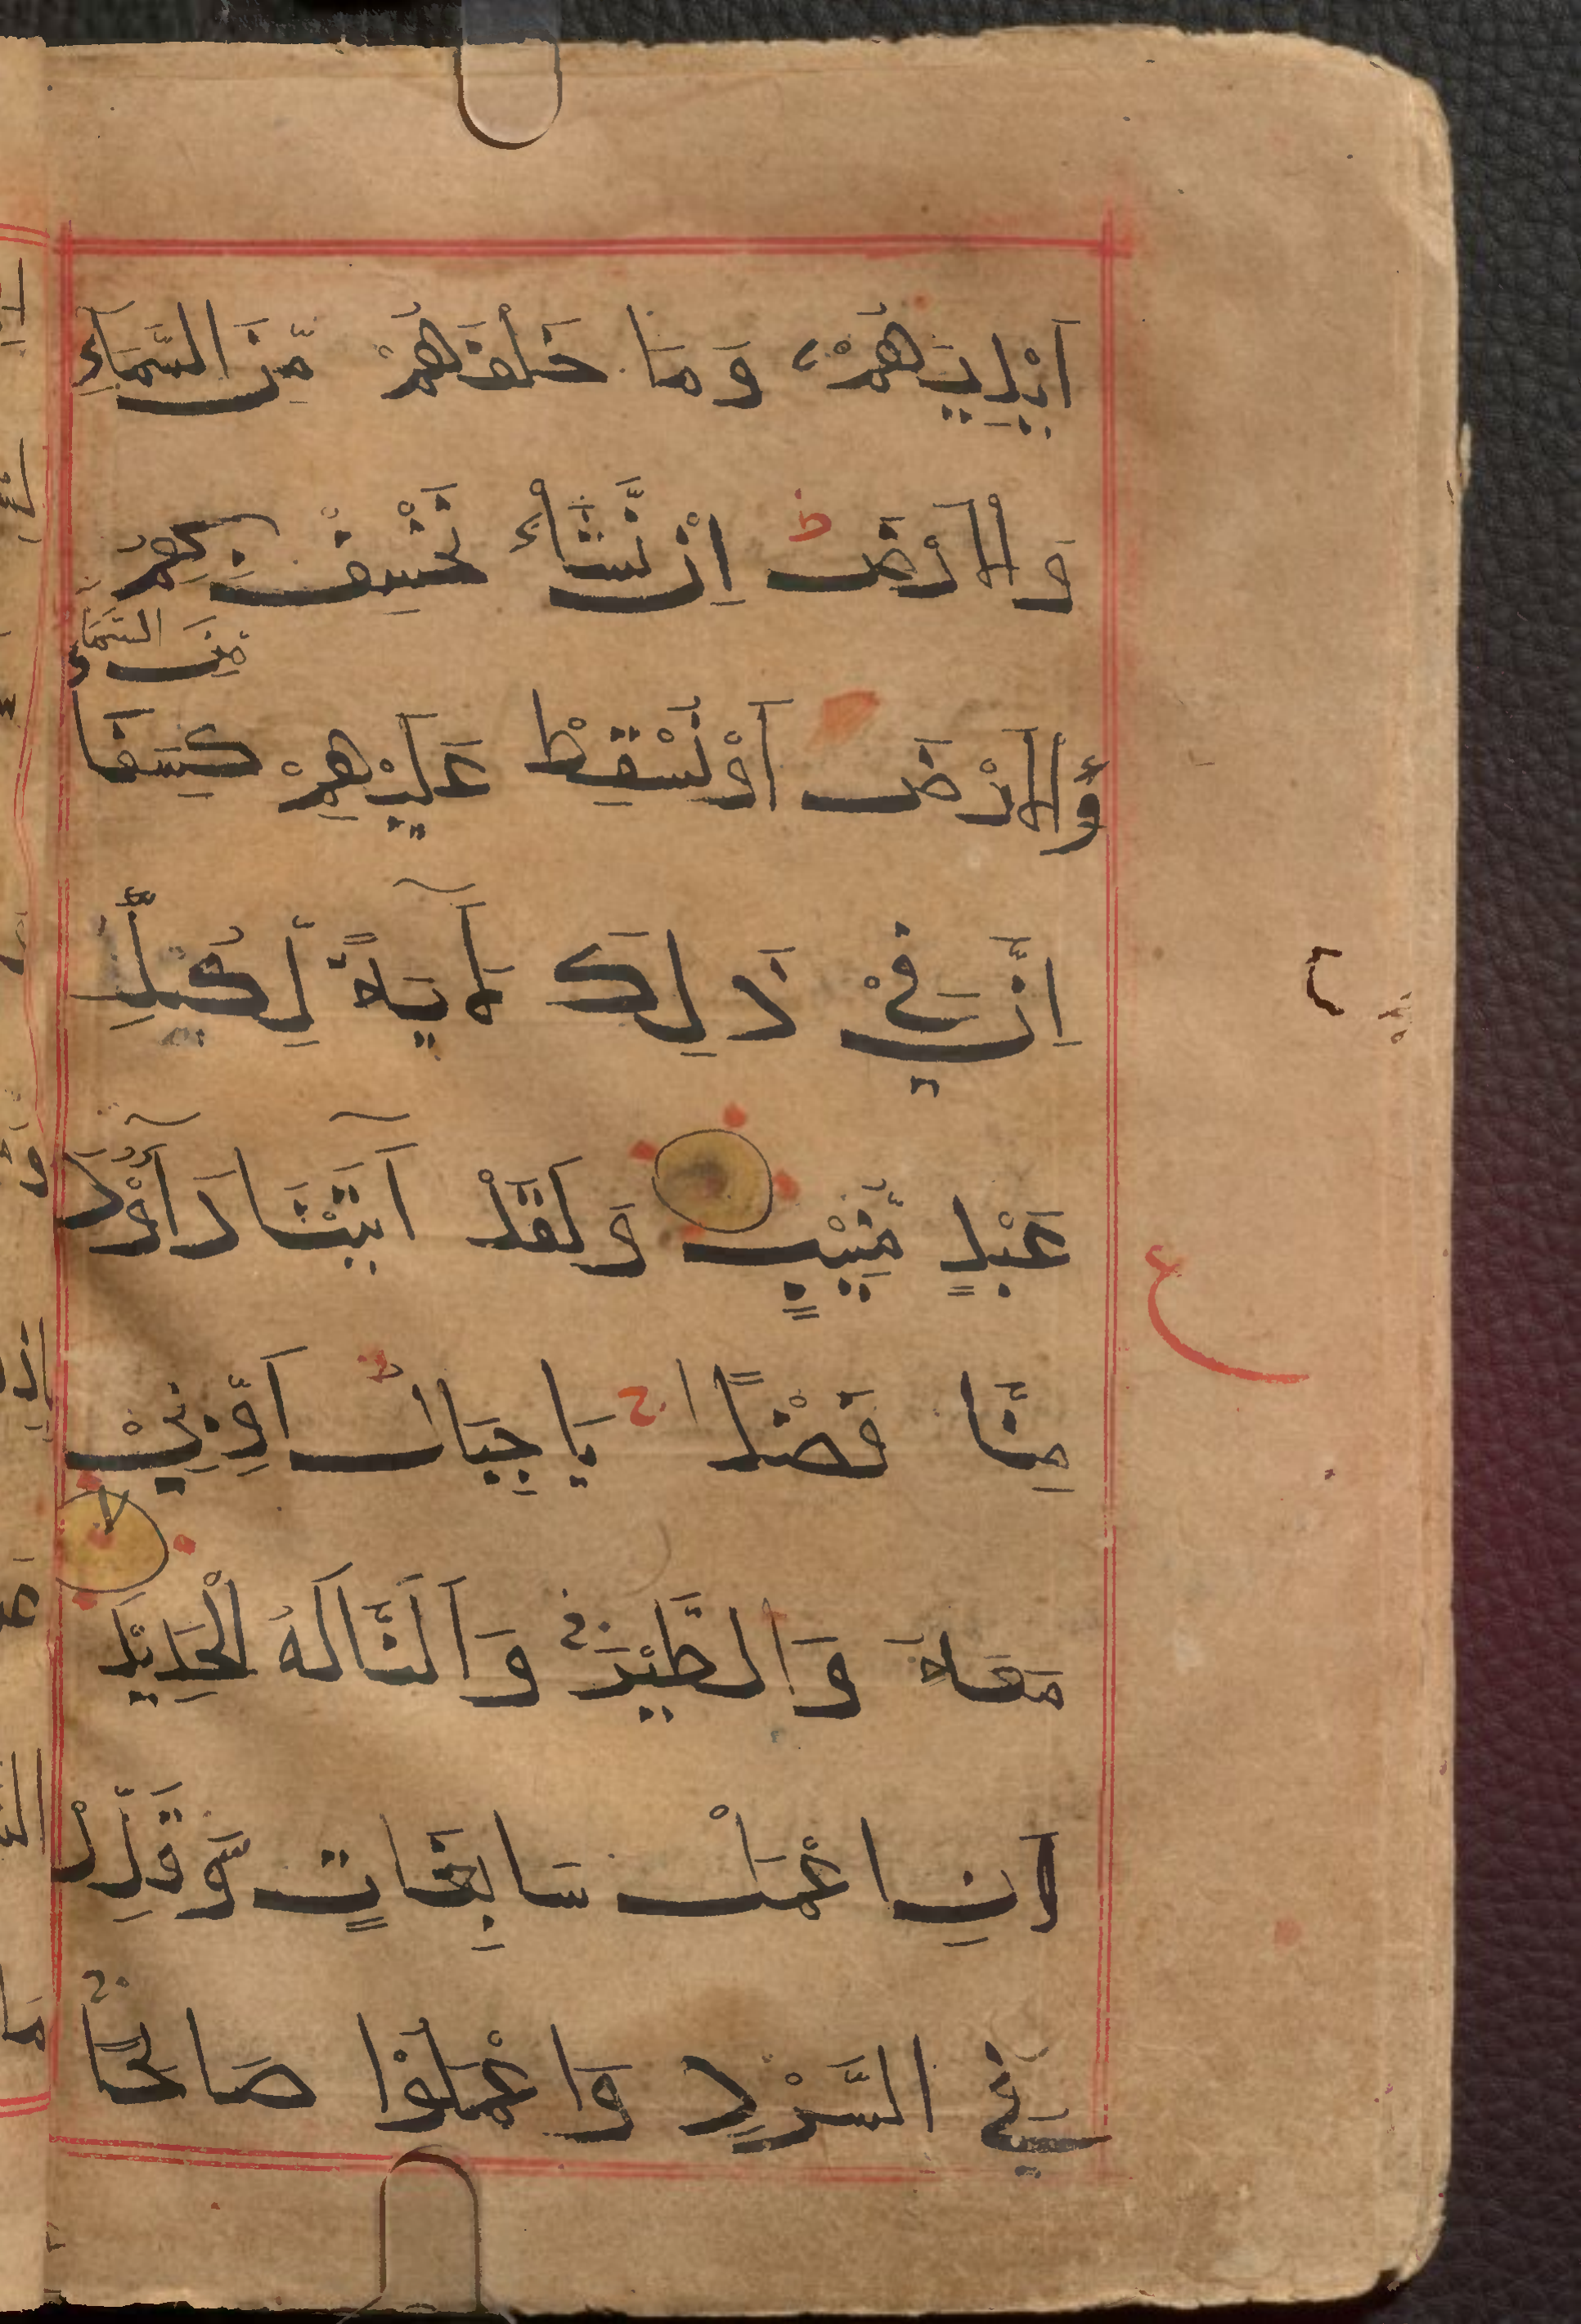 اَيْدِيَهُمْ وَمَا خَلْفَهُمْ مِّنَ السَّمَآءِ
وَالْاَرْضِ ط اِنْ نَّشَأْ نَخْسِفْ بِهِمُ
مِنَ السَّمَآءِ
وَّالْاَرْضَ اَوْ نُسْقِطْ عَلَيْهِمْ كِسَفًا
اِنَّ فِيْ ذَلِكَ لَآيَةً لِّكُلِّ
عَبْدٍ مُّنِيْبٍ وَلَقَدْ آتَيْنَا دَاوٗدَ
ع
مِنَّا فَضْلًا ج يَا جِبَالُ اَوِّبِيْ
مَعَهٗ وَالطَّيْرَ ج وَاَلَنَّا لَهُ الْحَدِيْدَ
لا
اَنِ اعْمَلْ سَابِغَاتٍ وَّقَدِّرْ
فِي السَّرْدِ وَاعْمَلُوْا صَالِحًا ج